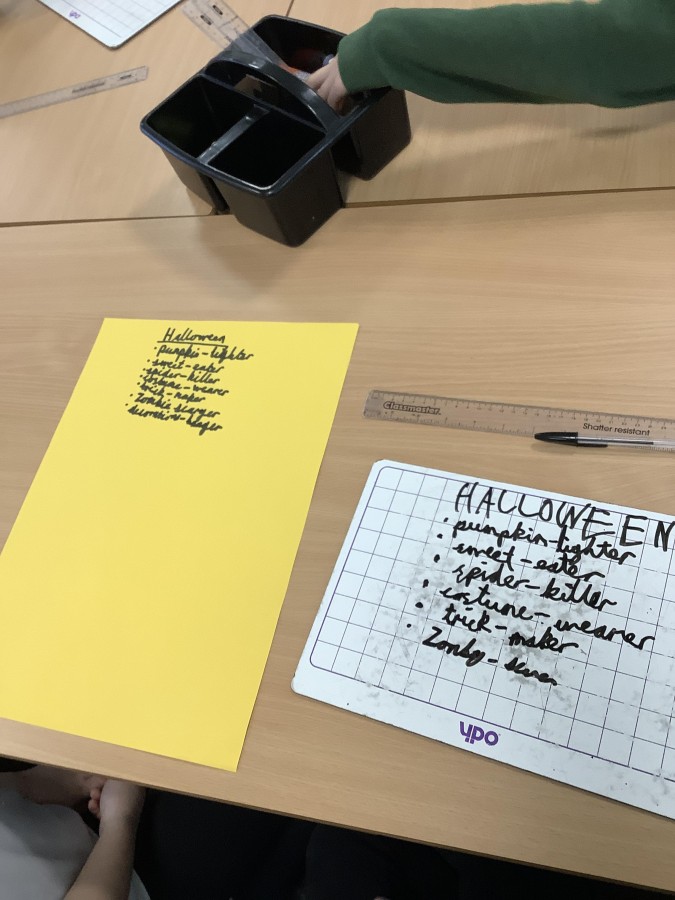 Halloween
• pumpkin-lighter
• sweet-eater
• spider-killer
• costume-wearer
• trick-maker
• Zombie
Classmaster.
Shatter resistant
HALLOWEEN
• pumpkin-lighter
• sweet-eater
• spider-killer
• costume-wearer
• trick-maker
• Zomby-
ypo